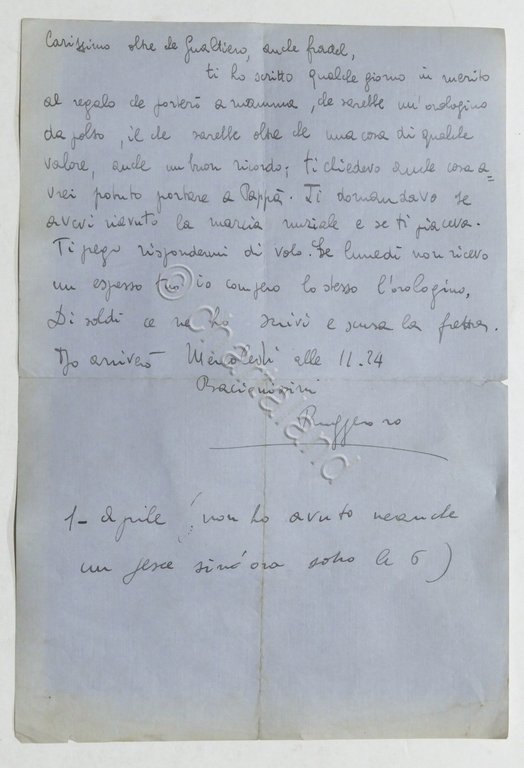 Carissimo oltre che Gualtiero, anche fradel,
ti ho scritto qualche giorno in merito
al regalo che porterò a mamma, che sarebbe un'orologino
da polso, il che sarebbe oltre che una cosa di qualche
valore, anche un buon ricordo; ti chiedevo anche cosa a=
vrei potuto portare a Pappà. Ti domandavo se
avevi riavuto la marcia nuziale e se ti piaceva.
Ti prego rispondermi di volo. Se lunedì non ricevo
un espresso tuo io compero lo stesso l'orologino,
Di soldi ce ne ho scrivi e scusa la fretta.
Io arriverò Mercoledì alle 11.24
Bacionissimi
Ruggero
1- Aprile (non ho avuto neanche
un pesce sin'ora sono le 6)
© Chartaland